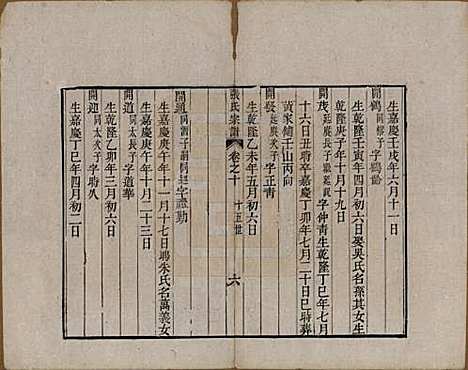 生嘉慶壬戌年六月十一日
開鶴 同 子字鶴齡
生乾隆壬寅年四月初六日娶吳氏名孫其女生
乾隆庚子年十月十九日
開茂 延慶長子 字仲青生乾隆丁巳年七月
十六日丑時卒嘉慶丁卯年七月二十日巳時葬
黃家傾壬山丙向
開發 延慶次子 字正青
生乾隆乙未年五月初六日
張氏宗譜 卷之十 十五世 六
開道 同 子嗣 字 勤
生嘉慶庚午年十一月十七日聘朱氏名萬義女
生嘉慶庚午年十月二十三日
開道 同太長子 字道華
生乾隆乙卯年三月初六日
開迎 同太次子 字時久
生嘉慶丁巳年四月初二日